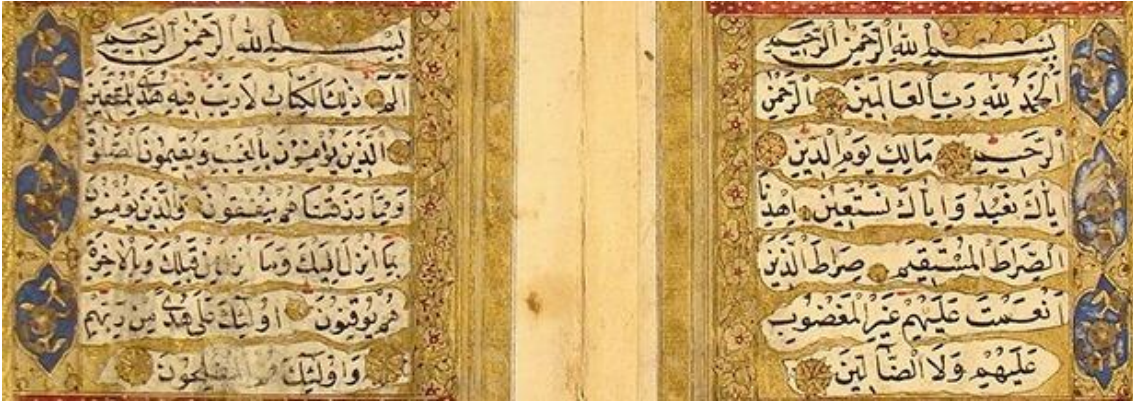 بِسْمِ اللهِ الرَّحْمٰنِ الرَّحِيمِ
اَلْحَمْدُ لِلّٰهِ رَبِّ الْعَالَمِينَ الرَّحْمٰنِ
الرَّحِيمِ مَالِكِ يَوْمِ الدِّينِ
اِيَّاكَ نَعْبُدُ وَاِيَّاكَ نَسْتَعِينُ اِهْدِنَا
الصِّرَاطَ الْمُسْتَقِيمَ صِرَاطَ الَّذِينَ
اَنْعَمْتَ عَلَيْهِمْ غَيْرِ الْمَغْضُوبِ
عَلَيْهِمْ وَلَا الضَّالِّينَ
بِسْمِ اللهِ الرَّحْمٰنِ الرَّحِيمِ
الٓمٓ ذٰلِكَ الْكِتَابُ لَا رَيْبَ فِيهِ هُدًى لِلْمُتَّقِينَ
اَلَّذِينَ يُؤْمِنُونَ بِالْغَيْبِ وَيُقِيمُونَ الصَّلٰوةَ
وَمِمَّا رَزَقْنَاهُمْ يُنْفِقُونَ وَالَّذِينَ يُؤْمِنُونَ
بِمَا اُنْزِلَ اِلَيْكَ وَمَا اُنْزِلَ مِنْ قَبْلِكَ وَبِالْاٰخِرَةِ
هُمْ يُوقِنُونَ اُولٰئِكَ عَلٰى هُدًى مِنْ رَبِّهِمْ
وَاُولٰئِكَ هُمُ الْمُفْلِحُونَ